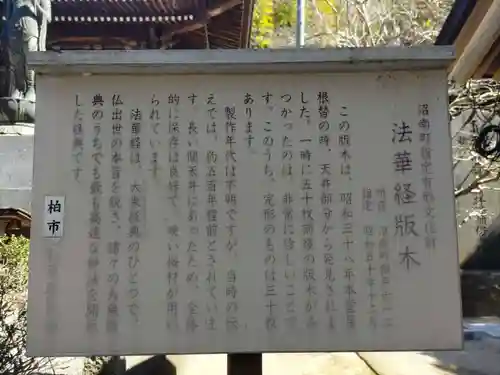 沼南町指定有形文化財
法華経版木
指定 昭和五十年十二月
この版木は、昭和三十八年本堂屋
根替の時、天井部分から発見されま
した。一時に五十枚同様の版木がみ
つかったのは、非常に珍しいことで
す。このうち、完形のものは三十枚
あります。
製作年代は不明ですが、当時の伝
えでは、約五百年程前とされていま
す。長い間天井に
的に保存は良好で、硬い桜材が用い
られています。
法華経は、大乗経典のひとつで、
仏出世の本旨を説き、諸々の大乗経
典のうちでも最も高遠な妙法を開示
した経典です。
柏市